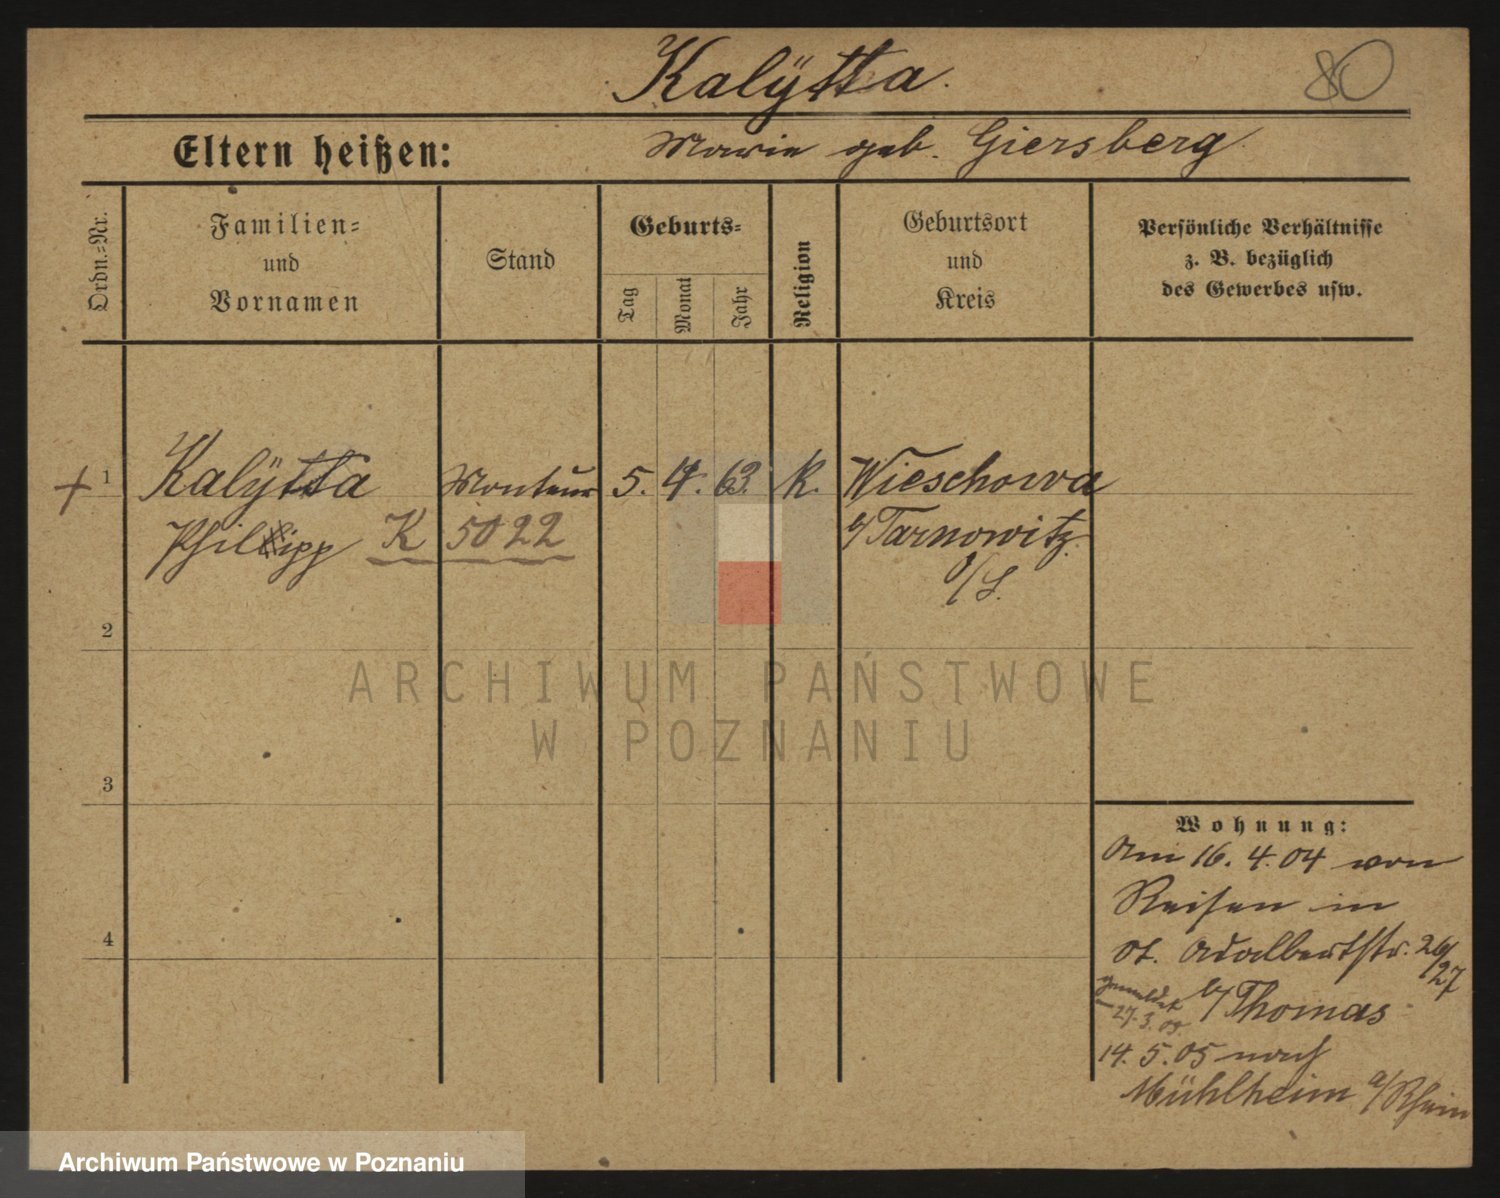 Kalÿtta.
80
Eltern heißen:
Marie geb. Giersberg.
Ordn.=Nr.
Familien=
und
Vornamen
Stand
Geburts=
Tag
Monat
Jahr
Religion
Geburtsort
und
Kreis
Persönliche Verhältnisse
z. B. bezüglich
des Gewerbes usw.
+ 1 Kalÿtta Monteur 5. 4. 63. k. Wieschowa
Philipp K 5022 b/ Tarnowitz.
O/S.
2
3
4
Wohnung:
Am 16. 4. 04 von
Reisen in
St. Adalbertstr. 26/27
b/ Thomas
gemeldet
27. 3. 05
14. 5. 05 nach
Mühlheim a/Rhein
ARCHIWUM PAŃSTWOWE
W POZNANIU
Archiwum Państwowe w Poznaniu